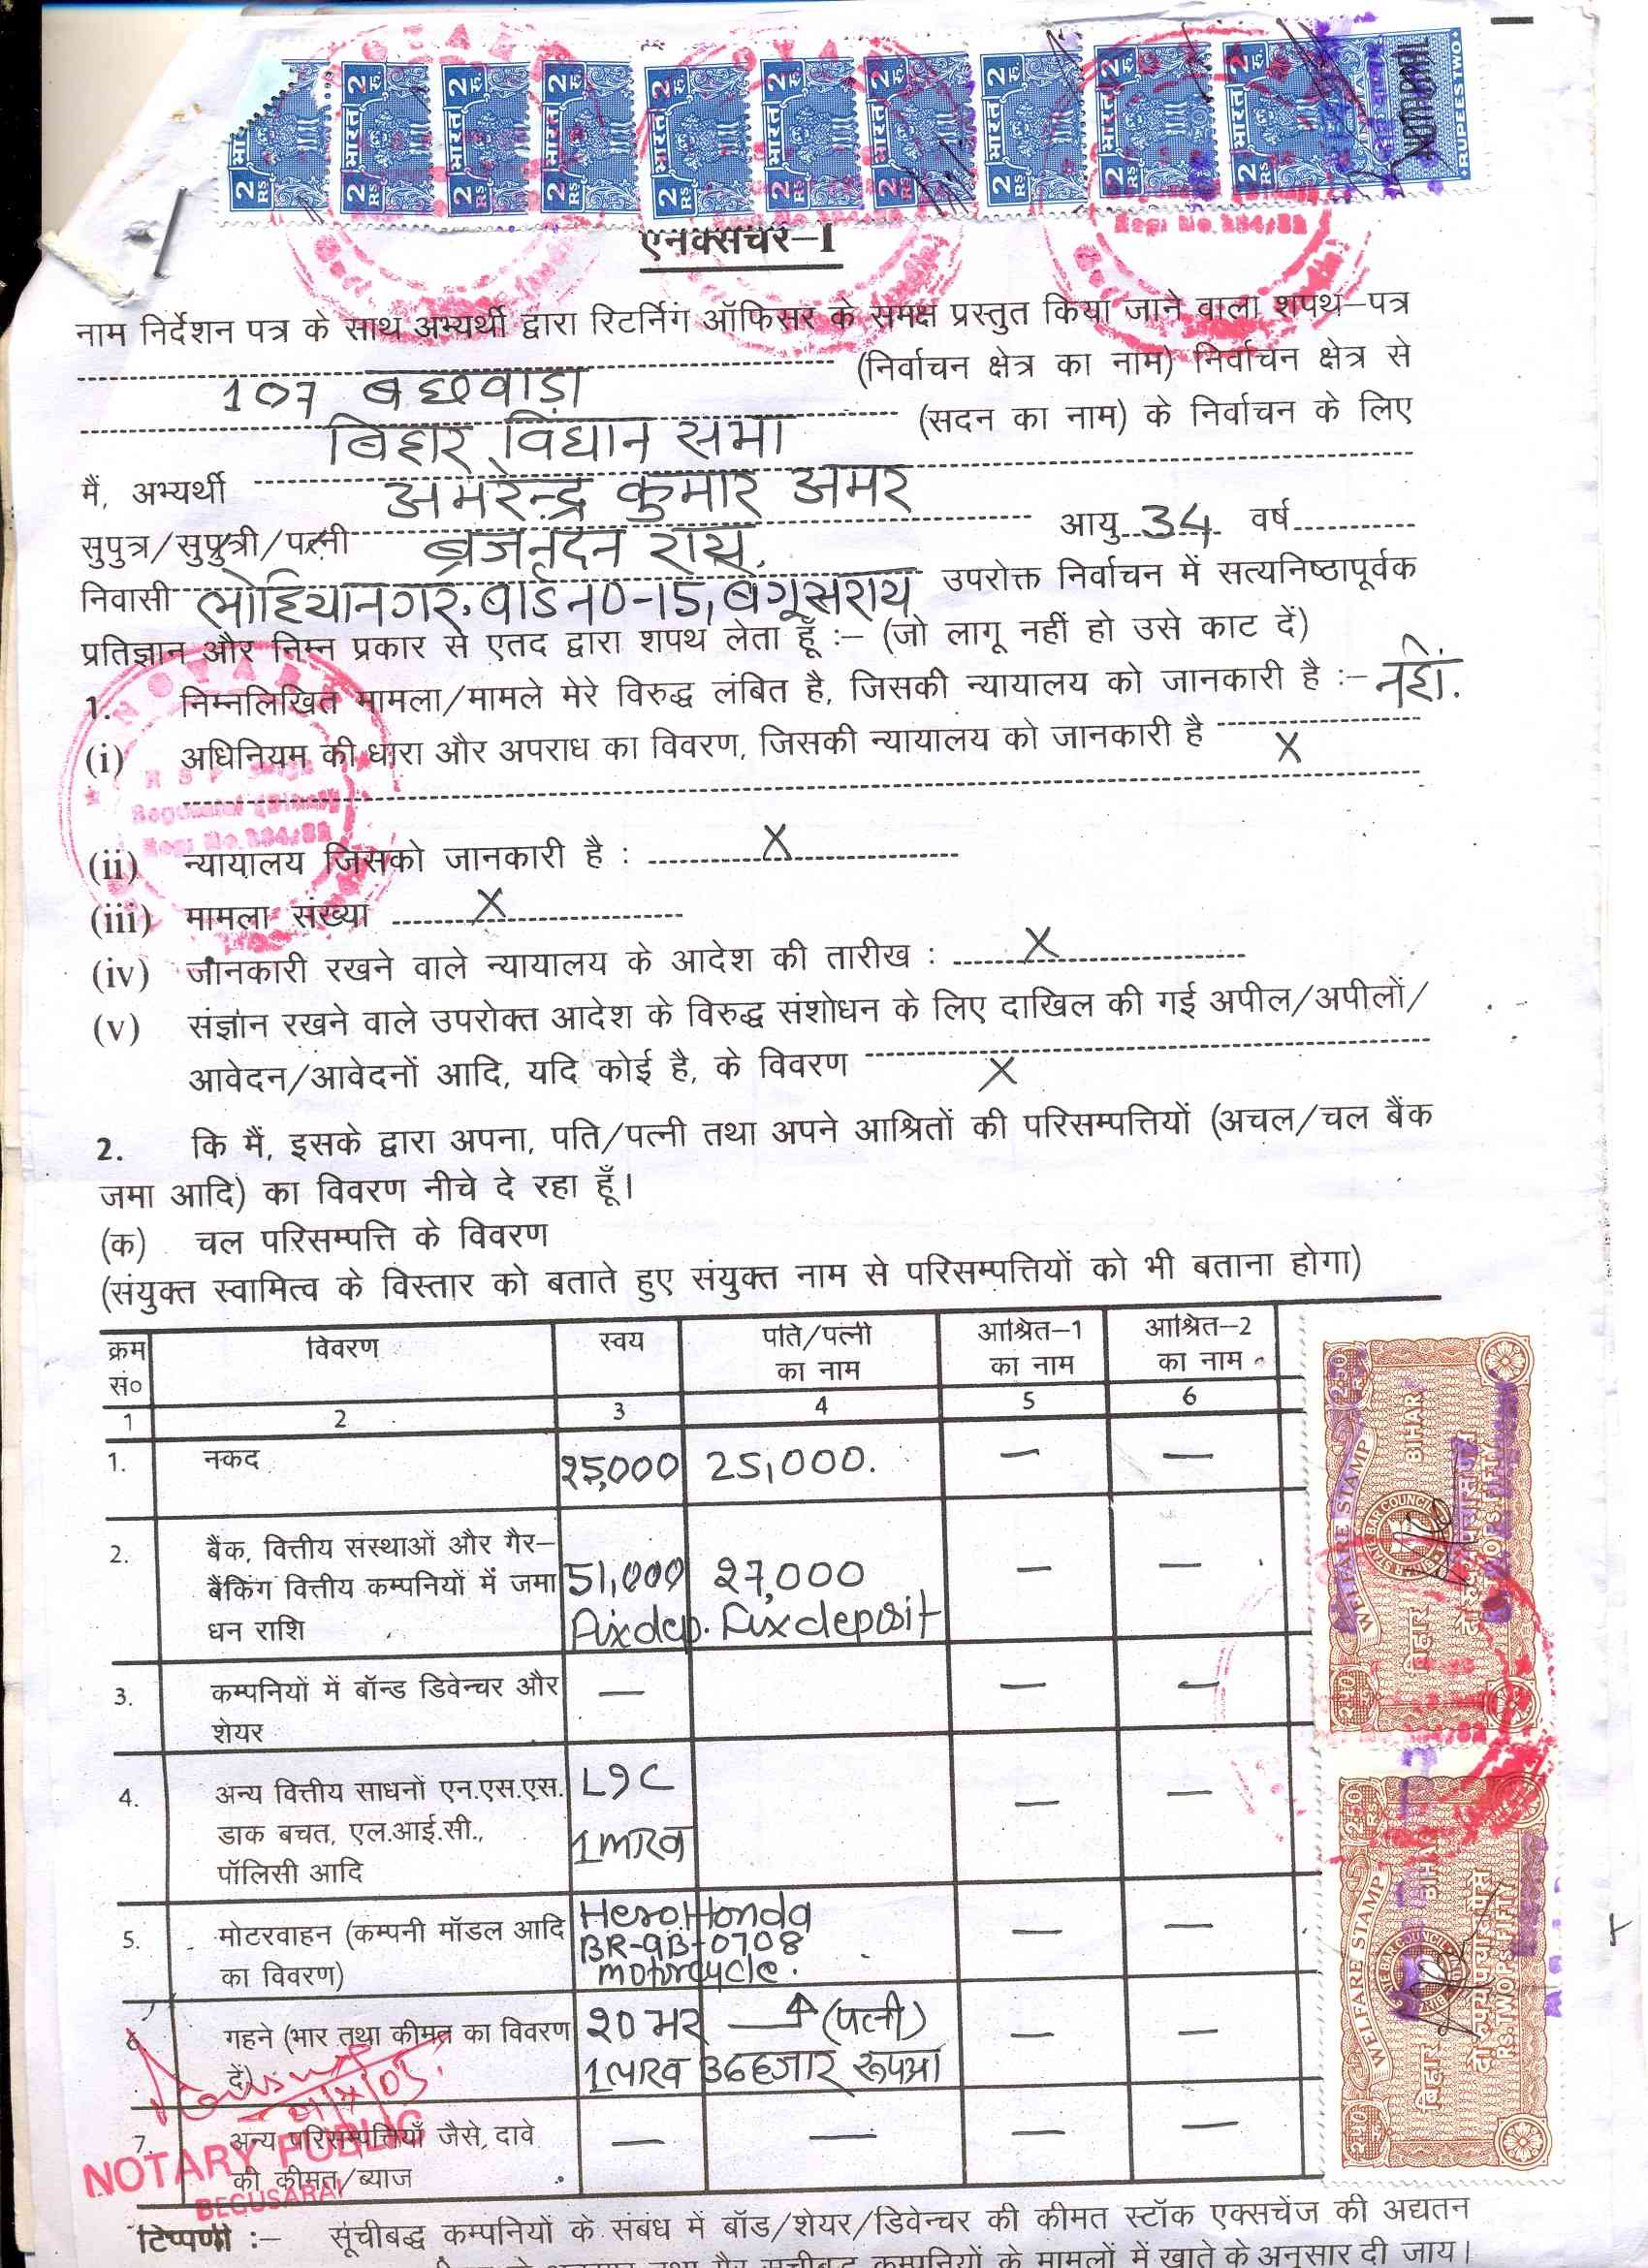 एनक्सचर–I
नाम निर्देशन पत्र के साथ अभ्यर्थी द्वारा रिटर्निंग ऑफिसर के समक्ष प्रस्तुत किया जाने वाला शपथ–पत्र
107 बछवाड़ा (निर्वाचन क्षेत्र का नाम) निर्वाचन क्षेत्र से
बिहार विधान सभा (सदन का नाम) के निर्वाचन के लिए
मैं, अभ्यर्थी अमरेन्द्र कुमार अमर
सुपुत्र/सुपुत्री/पत्नी ब्रजनंदन राय, आयु 34 वर्ष
निवासी लोहियानगर, वार्ड न0-15, बेगूसराय उपरोक्त निर्वाचन में सत्यनिष्ठापूर्वक
प्रतिज्ञान और निम्न प्रकार से एतद द्वारा शपथ लेता हूँ :– (जो लागू नहीं हो उसे काट दें)
1. निम्नलिखित मामला/मामले मेरे विरुद्ध लंबित है, जिसकी न्यायालय को जानकारी है :– नहीं.
(i) अधिनियम की धारा और अपराध का विवरण, जिसकी न्यायालय को जानकारी है X
(ii) न्यायालय जिसको जानकारी है : X
(iii) मामला संख्या X
(iv) जानकारी रखने वाले न्यायालय के आदेश की तारीख : X
(v) संज्ञान रखने वाले उपरोक्त आदेश के विरुद्ध संशोधन के लिए दाखिल की गई अपील/अपीलों/
आवेदन/आवेदनों आदि, यदि कोई है, के विवरण X
2. कि मैं, इसके द्वारा अपना, पति/पत्नी तथा अपने आश्रितों की परिसम्पत्तियों (अचल/चल बैंक
जमा आदि) का विवरण नीचे दे रहा हूँ।
(क) चल परिसम्पत्ति के विवरण
(संयुक्त स्वामित्व के विस्तार को बताते हुए संयुक्त नाम से परिसम्पत्तियों को भी बताना होगा)
क्रम सं० विवरण स्वय पति/पत्नी का नाम आश्रित–1 का नाम आश्रित–2 का नाम
1 2 3 4 5 6
1. नकद 25,000 25,000. — —
2. बैंक, वित्तीय संस्थाओं और गैर–
बैंकिंग वित्तीय कम्पनियों में जमा 51,000 27,000 — —
धन राशि Fixdep. Fixdeposit
3. कम्पनियों में बॉन्ड डिवेन्चर और — — —
शेयर
4. अन्य वित्तीय साधनों एन.एस.एस. LIC — —
डाक बचत, एल.आई.सी., 1 लाख
पॉलिसी आदि
5. मोटरवाहन (कम्पनी मॉडल आदि Hero Honda — —
का विवरण) BR-9B-0708
motorcycle.
6. गहने (भार तथा कीमत का विवरण 20 भर (पत्नी) — —
दें) 1 लाख 36 हजार रूपया
7. अन्य परिसम्पत्तियाँ जैसे, दावे — — — —
की कीमत/ब्याज
NOTARY PUBLIC
BEGUSARAI
टिप्पणी :– सूचीबद्ध कम्पनियों के संबंध में बॉड/शेयर/डिवेन्चर की कीमत स्टॉक एक्सचेंज की अद्यतन
कम्पनियों के मामलों में खाते के अनुसार दी जाय।
भारत 2 रु.
2 Rs
RUPES TWO
NOTARIAL
NOTARY
Regi No. 284/82
WELFARE STAMP
BAR COUNCIL
बिहार BIHAR
2.50
RS. TWO PS. FIFTY